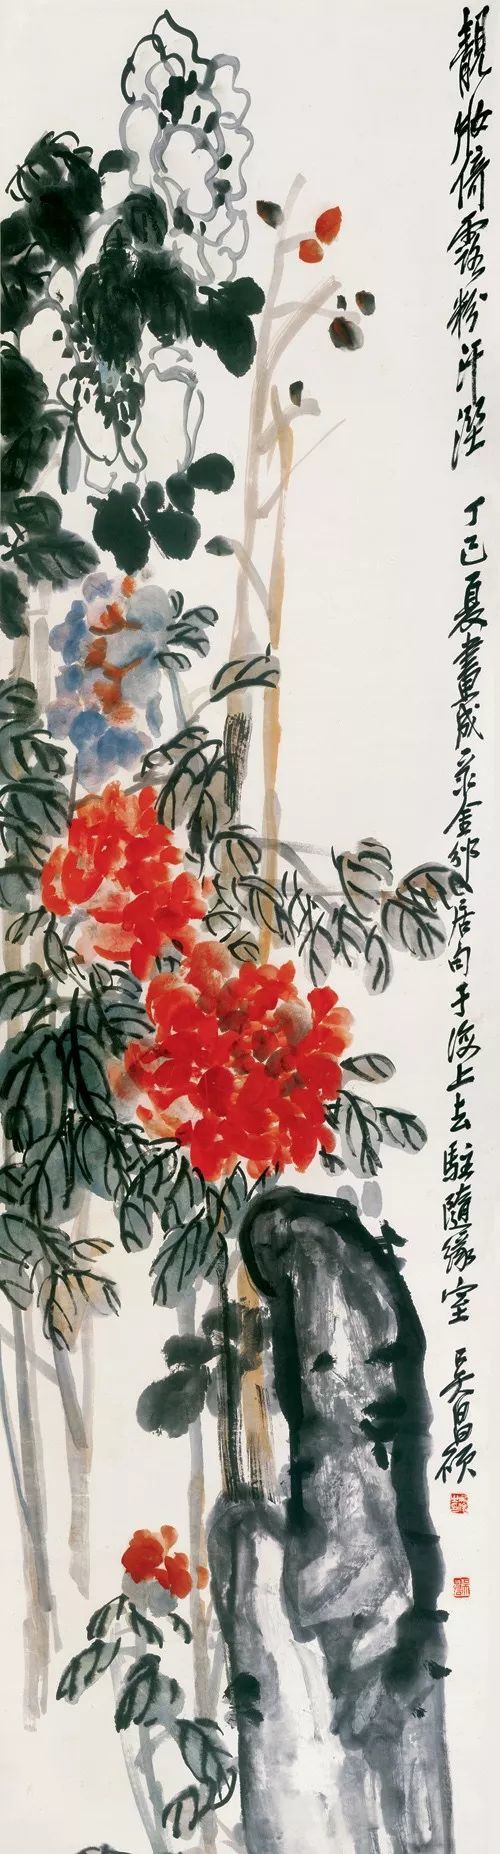 靚妝倚露粉汗溼 丁巳夏畫成 录金邠居句于海上去駐隨緣室 吳昌碩